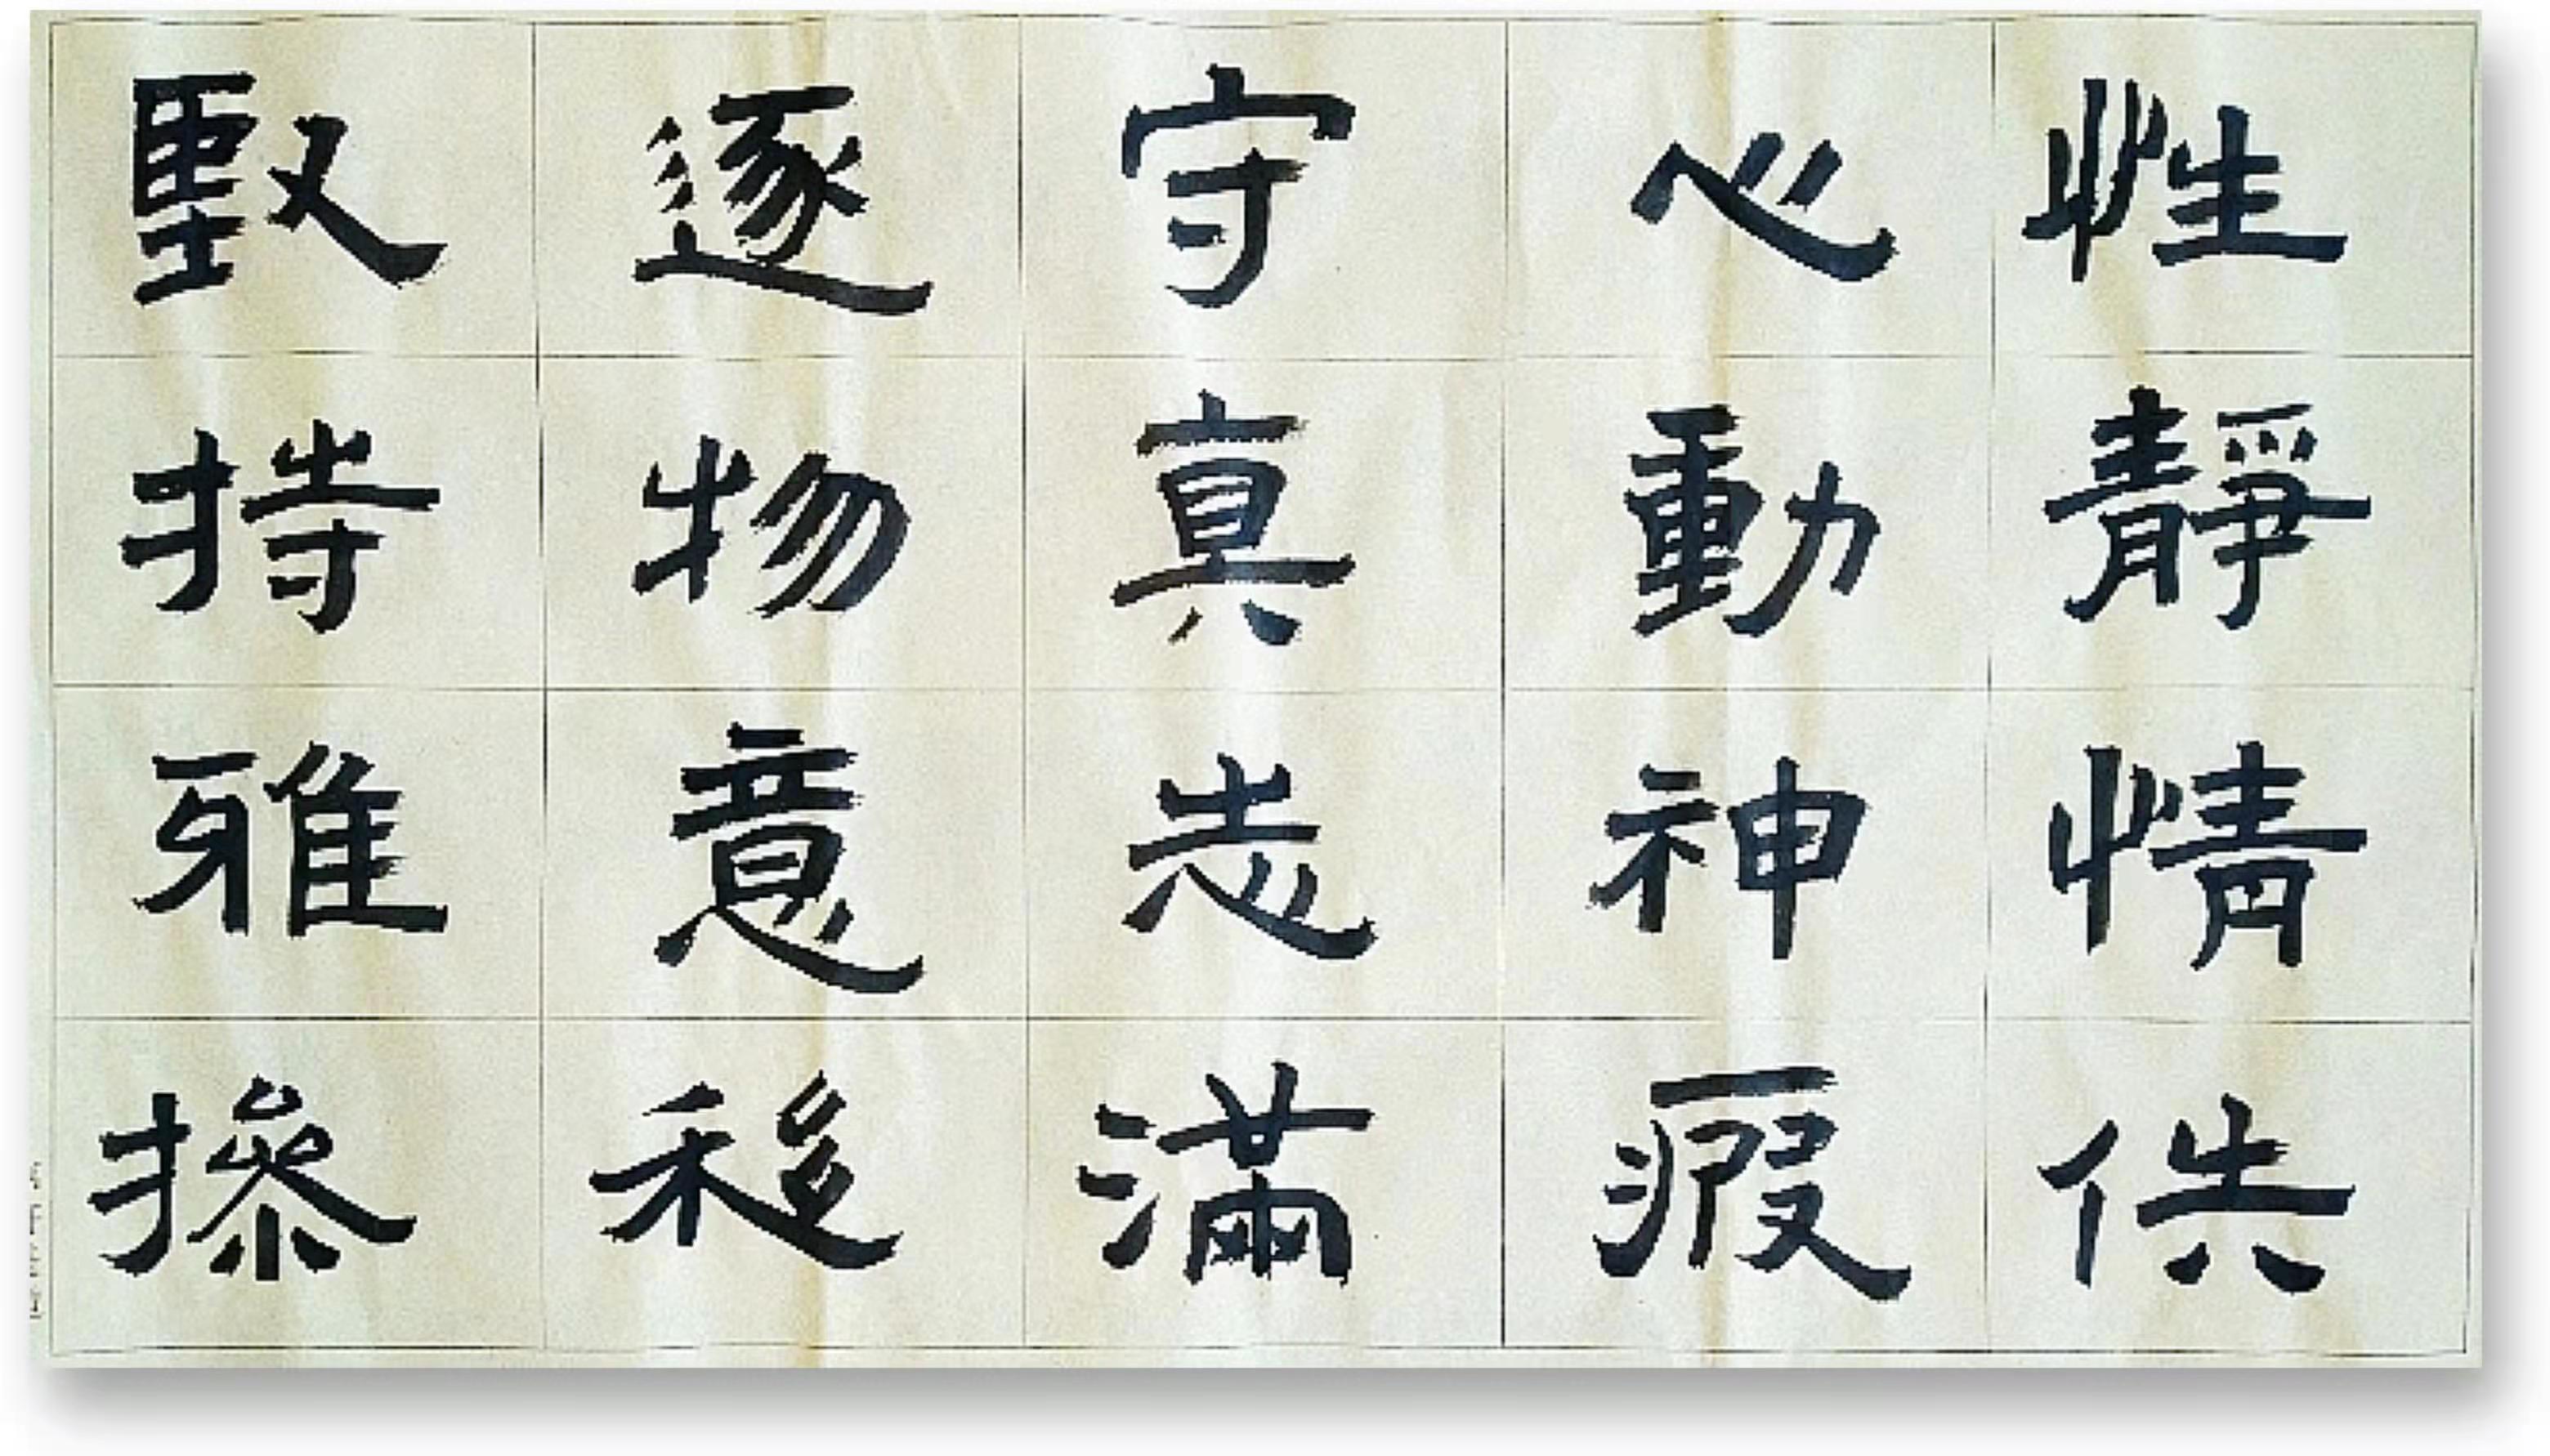 性靜情供
心動神瘕
守真志滿
逐物意移
堅持雅摻